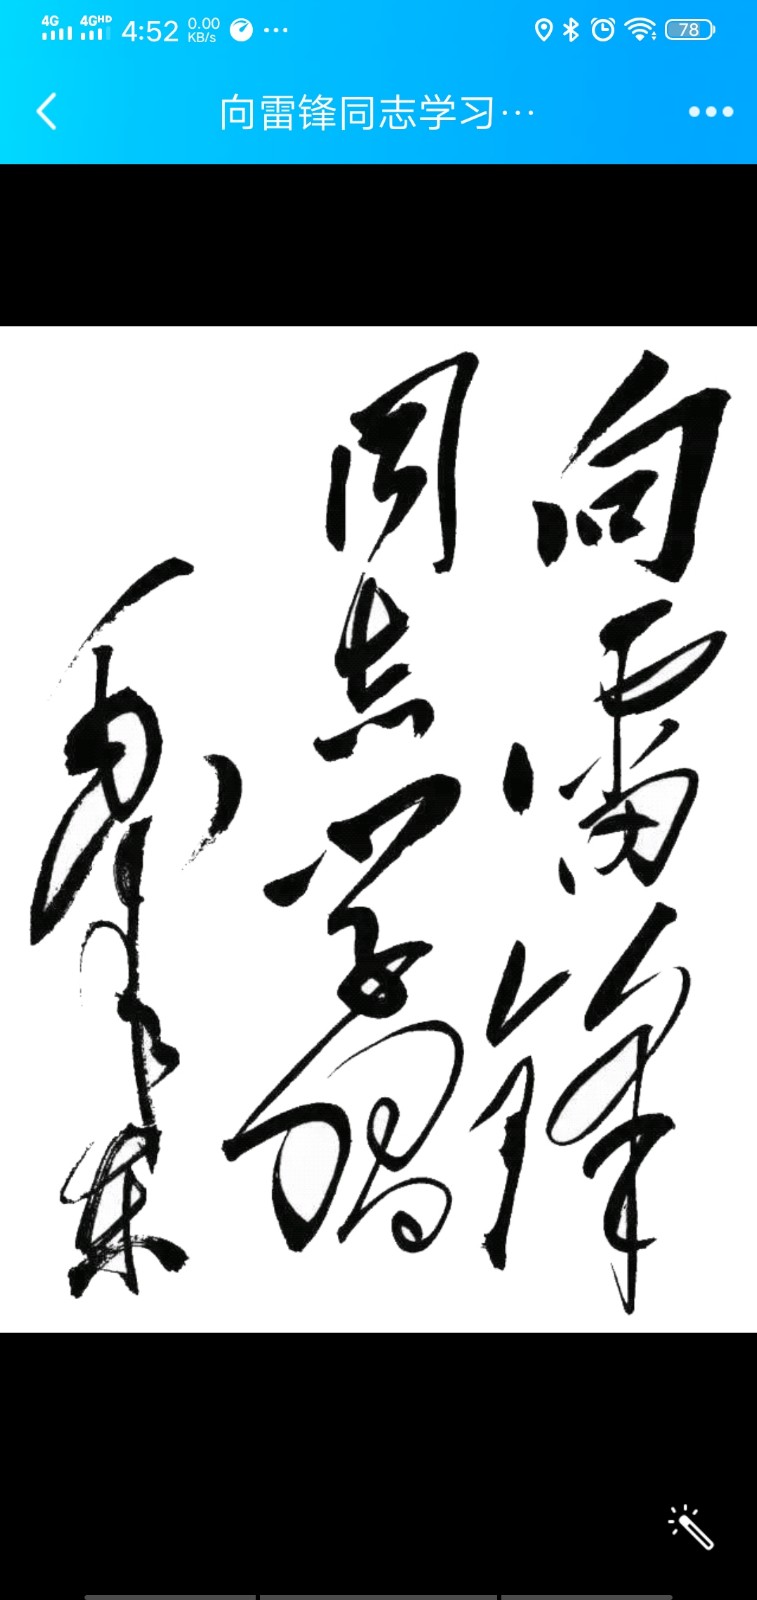 4G 4GHD 4:52 0.00 KB/s ... 78
向雷锋同志学习...
向雷锋
同志学習
毛泽东